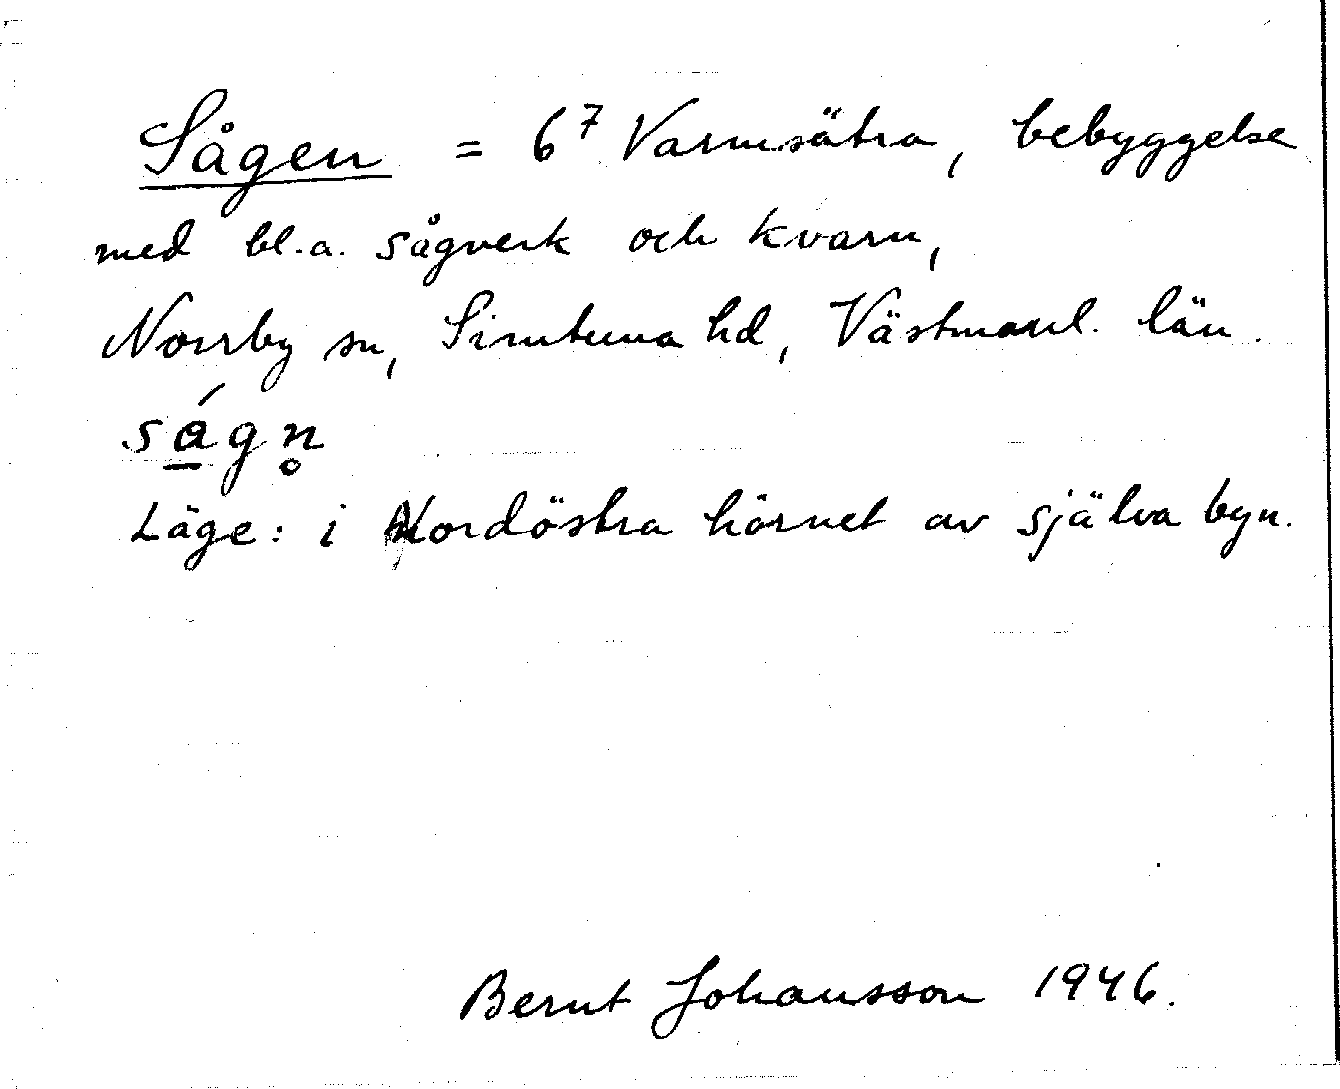 Sågen = 6⁷ Varmsätra, bebyggelse
med bl.a. sågverk och kvarn,
Norrby sn, Simtuna hd, Västmanl. län.
ság̱n̥
Läge: i Nordöstra hörnet av själva byn.
Bernt Johansson 1946.